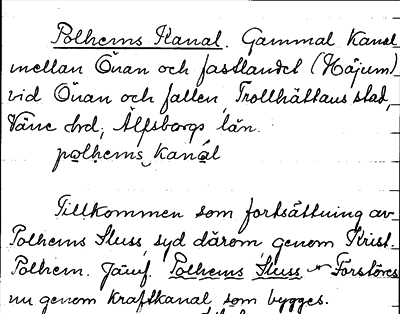 Polhems Kanal. Gammal kanal
mellan Önan och fastlandet (Håjum)
vid Önan och fallen, Trollhättans stad,
Väne hrd, Älfsborgs län.
polhems kanál
Tillkommen som fortsättning av
Polhems Sluss, syd därom genom Krist.
Polhem. Jämf. Polhems Sluss. Förstöres
nu genom kraftkanal som bygges.